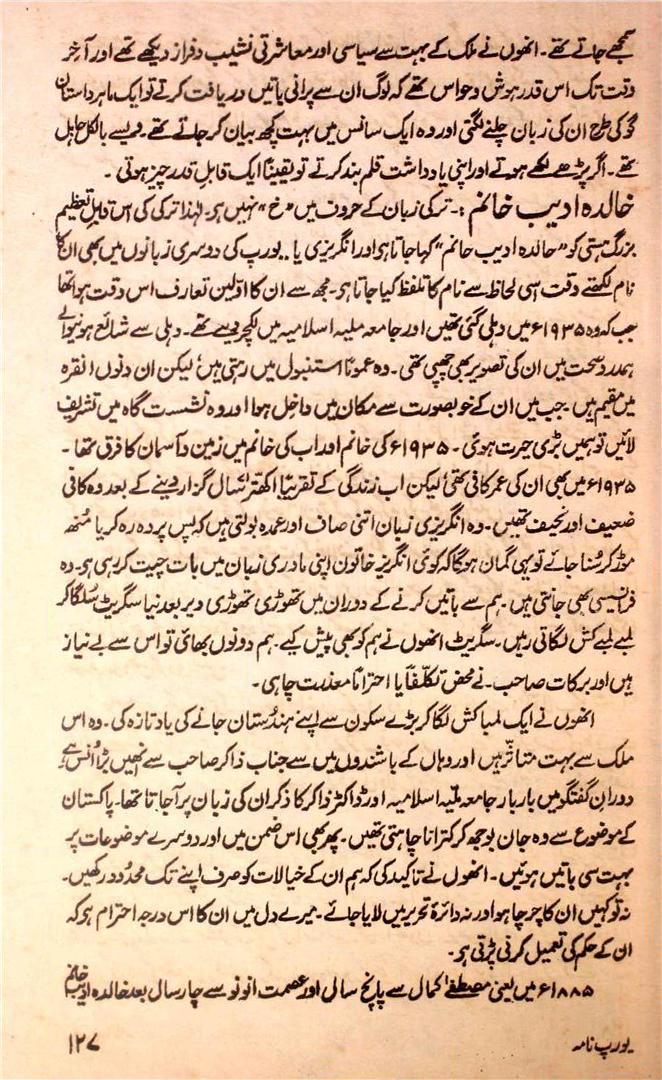 سمجھے جاتے تھے۔ انھوں نے ملک کے بہت سے سیاسی اور معاشرتی نشیب و فراز دیکھے تھے اور آخر
وقت تک اس قدر ہوش و حواس تھے کہ لوگ ان سے پرانی باتیں دریافت کرتے تو ایک ماہر داستان
گو کی طرح ان کی زبان چلنے لگتی اور وہ ایک سانس میں بہت کچھ بیان کر جاتے تھے۔ ویسے بالکل جاہل
تھے۔ اگر پڑھے لکھے ہوتے اور اپنی یادداشت قلم بند کرتے تو یقیناً ایک قابلِ قدر چیز ہوتی۔
خالدہ ادیب خانم :۔ ترکی زبان کے حروف میں "خ" نہیں ہو۔ لہٰذا ترکی کی اس قابلِ تعظیم
بزرگ ہستی کو "حالدہ ادیب حانم" کہا جاتا ہو اور انگریزی یا۔۔ یورپ کی دوسری زبانوں میں بھی ان کا
نام لکھتے وقت اسی لحاظ سے نام کا تلفظ کیا جاتا ہو۔ مجھ سے ان کا اوّلین تعارف اس وقت ہوا تھا
جب کہ وہ ۱۹۳۵ء میں دہلی گئی تھیں اور جامعہ ملیہ اسلامیہ میں لکچر دیے تھے۔ دہلی سے شائع ہونیوالے
ہمدرد صحت میں ان کی تصویر بھی چھپی تھی۔ وہ عموماً استنبول میں رہتی ہیں، لیکن ان دنوں انقرہ
میں مقیم ہیں۔ جب میں ان کے خوبصورت سے مکان میں داخل ہوا اور وہ نشست گاہ میں تشریف
لائیں تو ہمیں بڑی حیرت ہوئی۔ ۱۹۳۵ء کی خانم اور اب کی خانم میں زمین و آسمان کا فرق تھا۔
۱۹۳۵ء میں بھی ان کی عمر کافی تھی، لیکن اب زندگی کے تقریباً اکھتّر سال گزار دینے کے بعد وہ کافی
ضعیف اور نحیف تھیں۔ وہ انگریزی زبان اتنی صاف اور عمدہ بولتی ہیں کہ پس پردہ رہ کر یا مُنھ
موڑ کر سُنا جائے تو یہی گمان ہوگا کہ کوئی انگریز خاتون اپنی مادری زبان میں بات چیت کر رہی ہو۔ وہ
فرانسیسی بھی جانتی ہیں۔ ہم سے باتیں کرنے کے دوران میں تھوڑی تھوڑی دیر بعد نیا سگریٹ سُلگا کر
لمبے لمبے کش لگاتی رہیں۔ سگریٹ انھوں نے ہم کو بھی پیش کیے۔ ہم دونوں بھائی تو اس سے بے نیاز
ہیں اور برکات صاحب۔ نے محض تکلّفاً یا احتراماً معذرت چاہی۔
انھوں نے ایک لمبا کش لگا کر بڑے سکون سے اپنے ہندُستان جانے کی یاد تازہ کی۔ وہ اس
ملک سے بہت متاثّر ہیں اور وہاں کے باشندوں میں سے جناب ذاکر صاحب سے انھیں بڑا اُنس ہے
دورانِ گفتگو میں بار بار جامعہ ملّیہ اسلامیہ اور ڈاکٹر ذاکر کا ذکر ان کی زبان پر آجاتا تھا۔ پاکستان
کے موضوع سے وہ جان بوجھ کر کترانا چاہتی تھیں۔ پھر بھی اس ضمن میں اور دوسرے موضوعات پر
بہت سی باتیں ہوئیں۔ انھوں نے تاکید کی کہ ہم ان کے خیالات کو صرف اپنے تک محدُود رکھیں۔
نہ تو کہیں ان کا چرچا ہو اور نہ دائرۂ تحریر میں لایا جائے۔ میرے دل میں ان کا اس درجہ احترام ہو کہ
ان کے حکم کی تعمیل کرنی پڑتی ہو۔
۱۸۸۵ء میں یعنی مصطفےٰ کمال سے پانچ سال اور عصمت انونو سے چار سال بعد خالدہ ادیب خانم
یورپ نامہ
۱۲۷